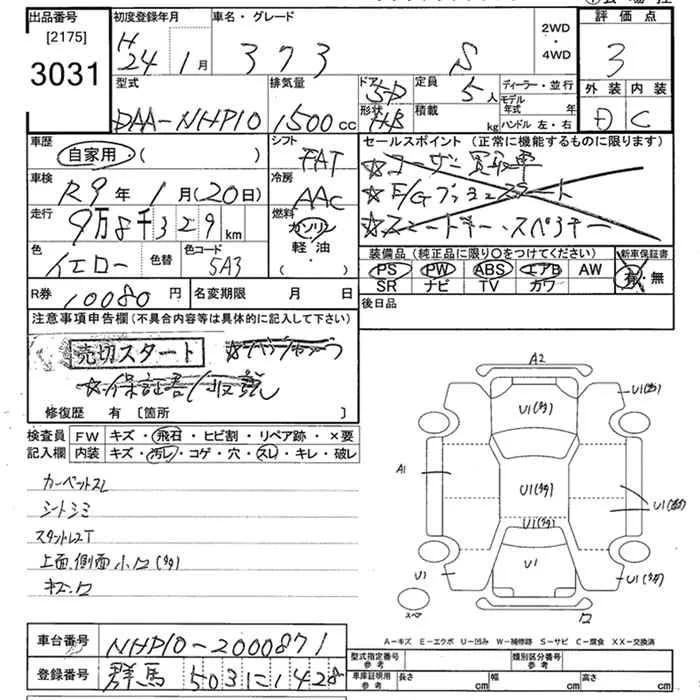 出品番号
[2175]
3031
初度登録年月
H 24年 1月
車名・グレード
373 S
2WD・4WD
評価点
3
型式
DAA-NHP10
排気量
1500cc
ドア 5D
形状 HB
定員 5人
積載 kg
ディーラー・並行
モデル年式 年
ハンドル 左・右
外装 内装
D C
車歴
自家用・( )
シフト
FAT
セールスポイント (正常に機能するものに限ります)
☆ユーザー買取車
☆スマートキー・スペアキー
車検
R9年 1月(20日)
冷房
AAC
走行
9万8千329km
燃料
ガソリン・軽油・( )
色
イエロー
色替
色コード
5A3
装備品 (純正品に限り○をつけてください)
PS PW ABS エアB AW
SR ナビ TV カワ
新車保証書
有・無
R券 10080円
名変期限 月 日
後日品
注意事項申告欄 (不具合内容等は具体的に記入して下さい)
売切スタート
修復歴 有 [箇所 ]
検査員記入欄
FW キズ・飛石・ヒビ割・リペア跡・×要
内装 キズ・汚レ・コゲ・穴・スレ・キレ・破レ
カーペットスレ
シートシミ
上面、側面小
A2
U1(多)
A1
U1(多)
U1(多)
U1
U1
スペア
A-キズ E-エクボ U-凹み W-補修跡 S-サビ C-腐食 XX-交換済
車台番号
NHP10-2000871
登録番号
群馬 503 に 1428
型式指定番号 参考
類別区分番号 参考
車庫証明用 参考 長さ cm 幅 cm 高さ cm